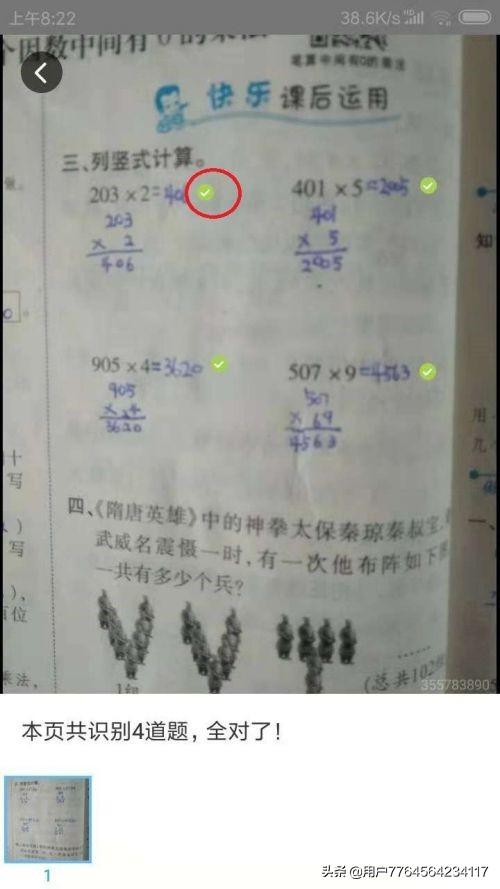 上午8:22
38.6K/s
个因数中间有0的乘法
笔算中间有0的乘法
快乐课后运用
三、列竖式计算。
203×2=406
401×5=2005
203
× 2
406
401
× 5
2005
905×4=3620
507×9=4563
905
× 4
3620
507
4563
四、《隋唐英雄》中的神拳太保秦琼秦叔宝,
武威名震慑一时,有一次他布阵如下图
一共有多少个兵?
1组
(总共102组
355783890
本页共识别4道题,全对了!
1
头条 @用户7764564234117